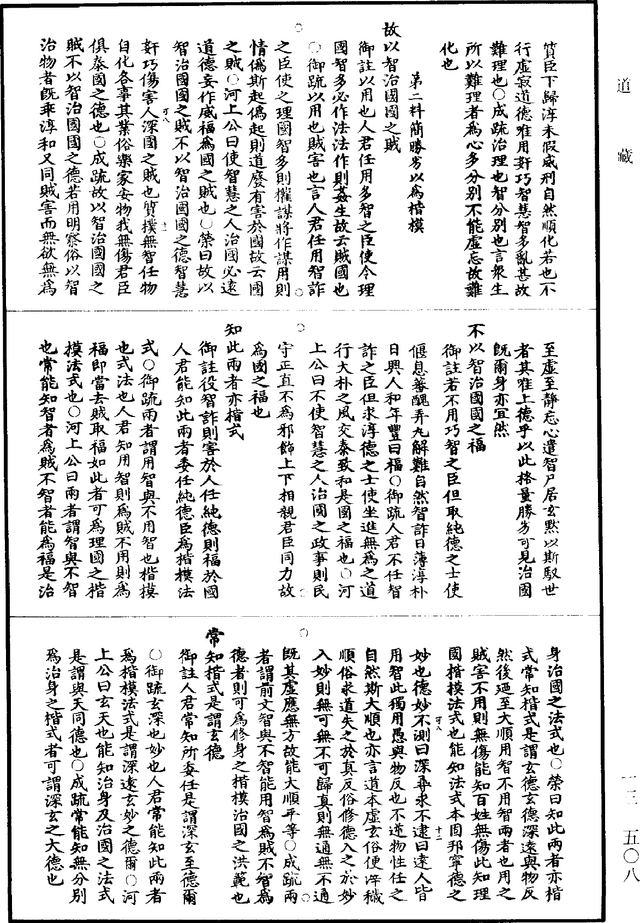 道藏
質臣下歸淳木假威刑自然順化若也不
行虛寂道德雅用奸巧智慧智多亂甚故
難理也○成疏治理也智分別也言衆生
所以難理者爲心多分別不能虛忘故難
化也
第二科簡勝劣以爲楷模
故以智治國國之賊
御註以用也人君任用多智之臣使令理
國智多必作法法作則姦生故云賊國也
○御疏以用也賊害也言人君任用智詐
之臣使之理國智多則權謀將作謀用則
情僞斯起僞起則道廢有害於國故云國
之賊○河上公曰使智慧之人治國必遠
道德妄作威福爲國之賊也○榮曰故以
智治國國之賊不以智治國國之德智慧
奸巧傷害人深國之賊也質樸無智任物
自化各事其業俗樂家安物我無傷君臣
俱泰國之德也○成疏故以智治國國之
賊不以智治國國之德若用明察俗以智
治物者旣乖淳和又同賊害而無欲無爲
至虛至靜忘心遣智尸居玄默以斯馭世
者其唯上德乎以此格量勝劣可見治國
旣爾身亦宜然
不以智治國國之福
御註若不用巧智之臣但取純德之士使
偃息蕃醜弄丸解難自然智詐日薄淳朴
日興人和年豐曰福○御疏人君不任智
詐之臣但求淳德之士使坐進無爲之道
行大朴之風交泰致和是國之福也○河
上公曰不使智慧之人治國之政事則民
守正直不爲邪飾上下相親君臣同力故
爲國之福也
知此兩者亦楷式
御註役智詐則害於人任純德則福於國
人君能知此兩者委任純德臣爲楷模法
式○御疏兩者謂用智與不用智也楷模
也式法也人君知用智則爲賊不用則爲
福即當去賊取福如此者可爲理國之楷
模法式也○河上公曰兩者謂智與不智
也常能知智者爲賊不智者能爲福是治
身治國之法式也○榮曰知此兩者亦楷
式常知楷式是謂玄德玄德深遠與物反
然後迺至大順用智不用智兩者也用之
賊害不用則無傷能知百姓無傷此知理
國楷模法式也能知法式本固邦寧德之
妙也德妙不測曰深尋求不逮曰遠人皆
用智此獨用愚與物反也不逆物性任之
自然斯大順也亦言道本虛玄俗便滓穢
順俗求道失之於真反俗修德入之於妙
入妙則無可無不可歸真則無通無不通
旣其虛應無方故能大順平等○成疏兩
者謂前文智與不智能用智爲賊不智爲
德者則可爲修身之楷模治國之洪範也
常知楷式是謂玄德
御註人君常知所委任是謂深玄至德爾
○御疏玄深也妙也人君常能知此兩者
爲楷模法式是謂深遠玄妙之德爾○河
上公曰玄天也能知治身及治國之法式
是謂與天同德也○成疏常能知無分別
爲治身之楷式者可謂深玄之大德也
一三 五〇八